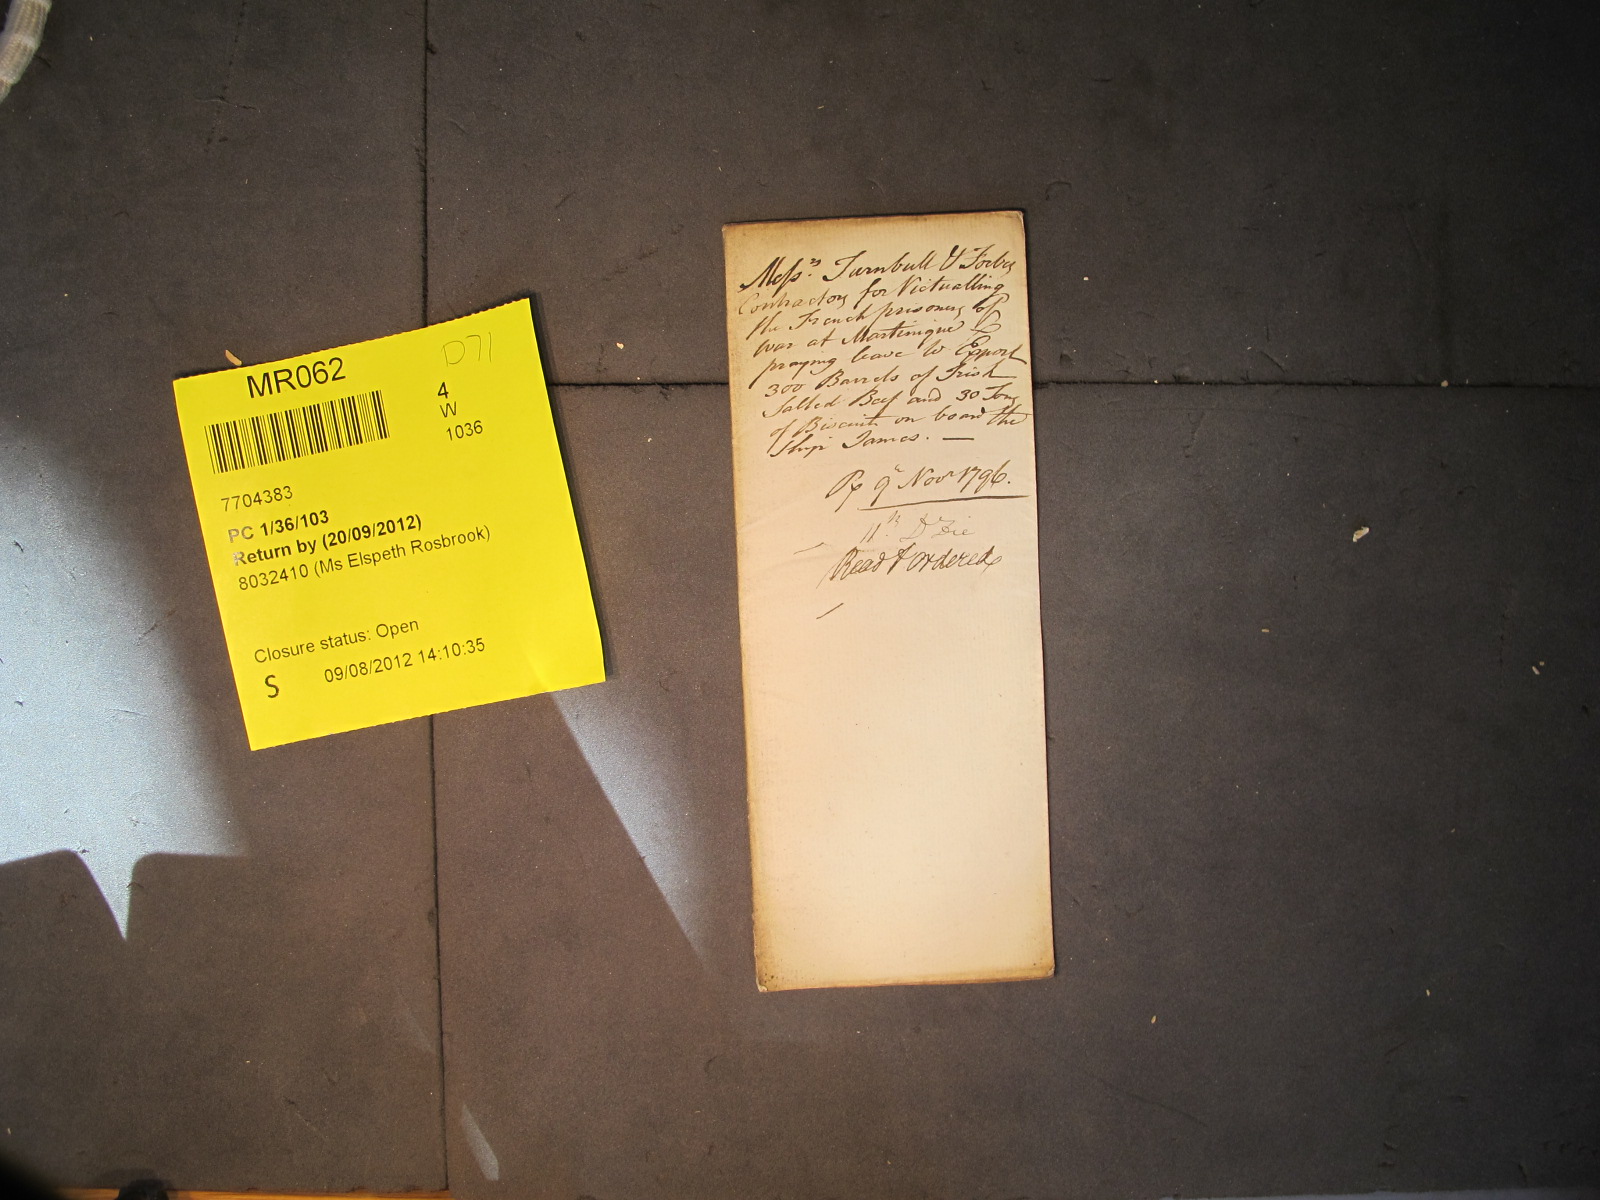 MR062
D71
4
W
1036
7704383
PC 1/36/103
Return by (20/09/2012)
8032410 (Ms Elspeth Rosbrook)
Closure status: Open
S 09/08/2012 14:10:35
Messrs. Turnbull & Forbes
Contractors for Victualling
the French prisoners of
war at Martinique &
praying leave to Export
300 Barrels of Irish
Salted Beef and 30 Tons
of Biscuit on board the
Ship James. —
Rx 9 Novr 1796.
11th. Do
Read & ordered